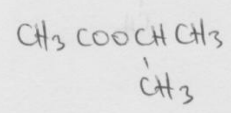 CH3 COOCH CH3
CH3